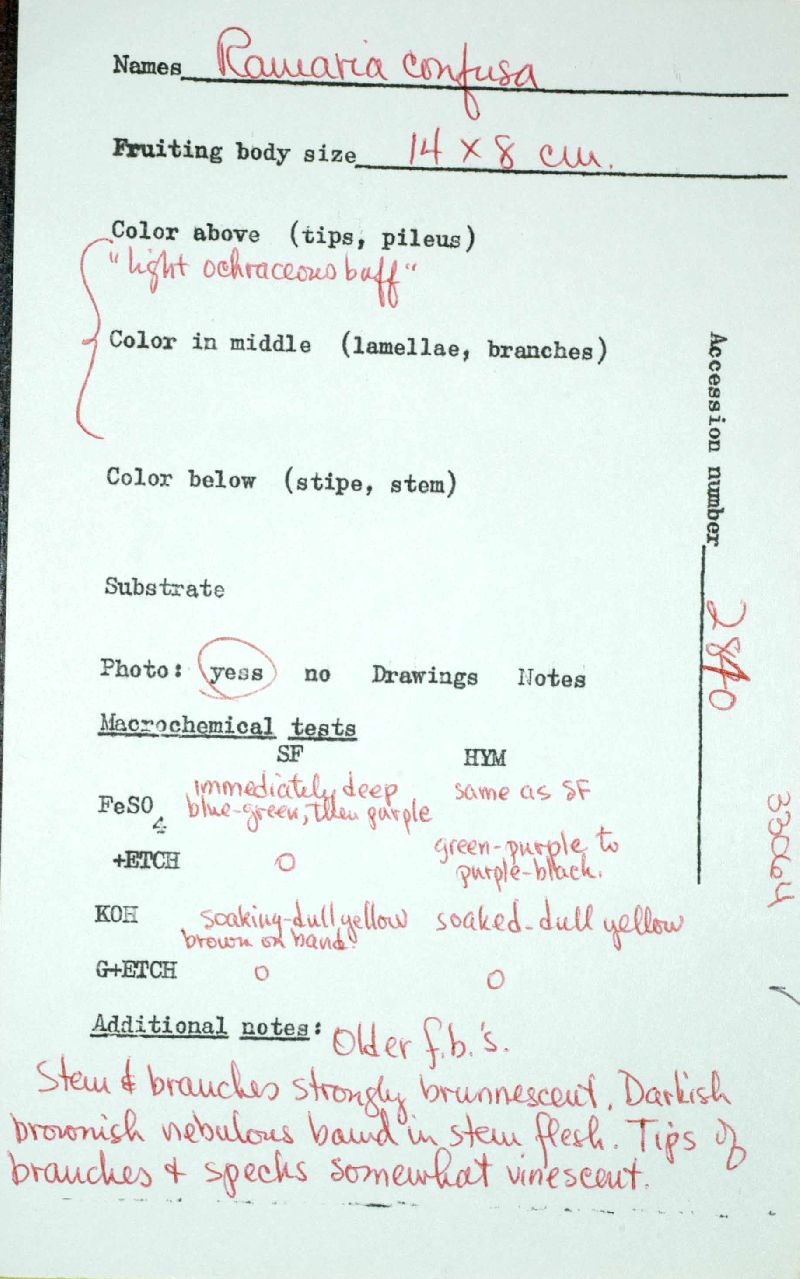 Names Ramaria confusa
Fruiting body size 14 x 8 cm.
Color above (tips, pileus)
"light ochraceous buff"
Color in middle (lamellae, branches)
Color below (stipe, stem)
Substrate
Photo: yess no Drawings Notes
Macrochemical tests
SF HYM
FeSO4 immediately deep blue-green, then purple same as SF
+ETCH O green-purple to purple-black.
KOH soaking-dull yellow brown on band! soaked-dull yellow
G+ETCH O O
Additional notes: Older f.b.'s.
Stem & branches strongly brunnescent. Darkish
brownish nebulous band in stem flesh. Tips of
branches + specks somewhat vinescent.
Accession number 2840
33064